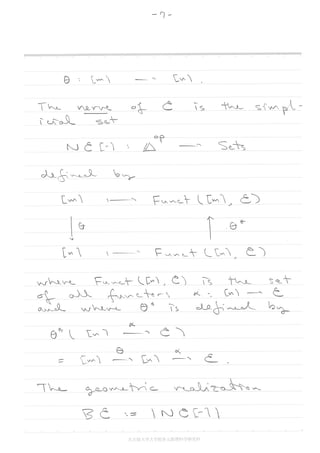 -7-
θ : [m] → [n].
The nerve of C is the simpl-
icial set
N C [-] : Δ^op → Sets
defined by
[m] ⟼ Funct([m], C)
↓ θ ↑ θ*
[n] ⟼ Funct([n], C)
where Funct([n], C) is the set
of all functors α : [n] → C
and where θ* is defined by
θ*( [n] —α→ C )
= [m] —θ→ [n] —α→ C.
The geometric realization
B C := |N C [-]|